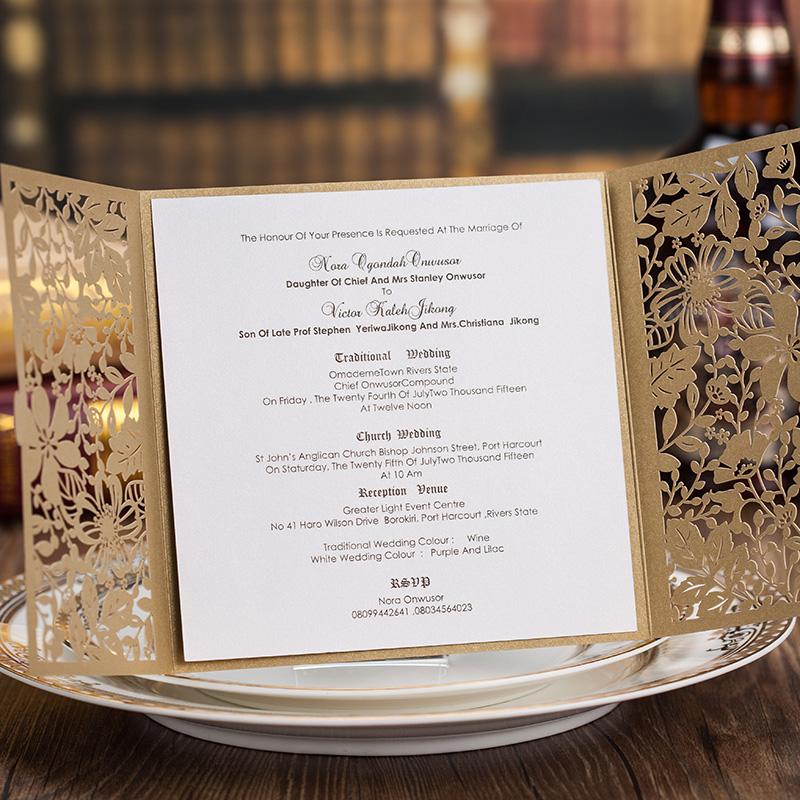 The Honour Of Your Presence Is Requested At The Marriage Of
Nora OgondahOnwusor
Daughter Of Chief And Mrs Stanley Onwusor
To
Victor KalehJikong
Son Of Late Prof Stephen YeriwaJikong And Mrs.Christiana Jikong
Traditional Wedding
OmademeTown Rivers State
Chief OnwusorCompound
On Friday , The Twenty Fourth Of JulyTwo Thousand Fifteen
At Twelve Noon
Church Wedding
St John's Anglican Church Bishop Johnson Street, Port Harcourt
On Staturday, The Twenty Fifth Of JulyTwo Thousand Fifteen
At 10 Am
Reception Venue
Greater Light Event Centre
No 41 Haro Wilson Drive Borokiri, Port Harcourt ,Rivers State
Traditional Wedding Colour : Wine
White Wedding Colour : Purple And Lilac
RSVP
Nora Onwusor
08099442641 ,08034564023